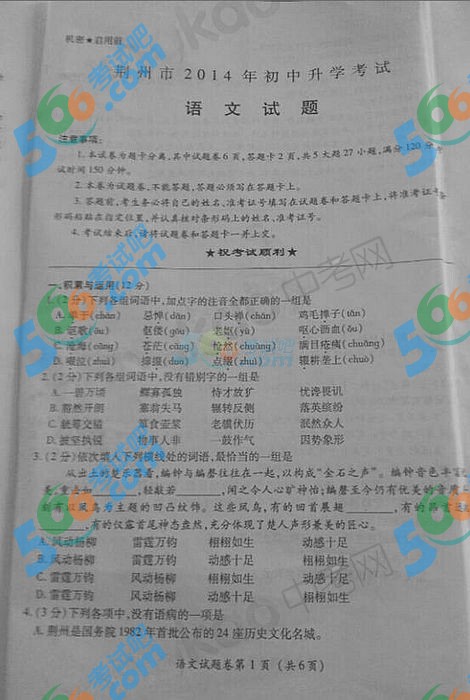 机密★启用前
荆州市2014年初中升学考试
语文试题
注意事项:
1.本试卷为题卡分离,其中试题卷6页,答题卡2页,共5大题27小题,满分120分,
试时间150分钟。
2.本卷为试题卷,不能答题,答题必须写在答题卡上。
3.答题前,考生务必将自己的姓名、准考证号填写在试题卷和答题卡上,将准考证号条
形码粘贴在指定位置,并认真核对条形码上的姓名、准考证号。
4.考试结束后,请将试题卷和答题卡一并上交。
★祝考试顺利★
一、积累与运用(12分)
1.(2分)下列各组词语中,加点字的注音全都正确的一组是
A.单于(chán) 忌惮(dàn) 口头禅(chán) 鸡毛掸子(tān)
B.讴歌(ōu) 佝偻(gōu) 老妪(yù) 呕心沥血(ǒu)
C.沧海(cāng) 苍茫(cāng) 怆然(chuàng) 满目疮痍(chuāng)
D.啜泣(zhuì) 拾掇(duo) 点缀(zhuì) 辍耕垄上(chuò)
2.(2分)下列各组词语中,没有错别字的一组是
A.一碧万顷 鳏寡孤独 恃才放旷 忧谗畏讥
B.豁然开朗 塞翁失马 辗转反侧 落英缤纷
C.觥筹交错 箪食壶浆 老骥伏历 泯然众人
D.披坚执锐 物事人非 一鼓作气 因势象形
3.(2分)依次填入下列横线处的词语,最恰当的一组是
从出土的楚乐器看,编钟与编磬往往在一起,以构成“金石之声”。编钟音色丰
美,重击如______,轻敲若______,闻之令人心旷神怡;编磬至今仍有优美的音质
新有以凤鸟为主题的凹凸纹饰。这些凤鸟,有的回首展翅______,有的昂首
______,有的仅露首尾神态盎然,充分体现了楚人声形兼美的匠心。
A.风动杨柳 雷霆万钧 栩栩如生 动感十足
B.风动杨柳 雷霆万钧 动感十足 栩栩如生
C.雷霆万钧 风动杨柳 栩栩如生 动感十足
D.雷霆万钧 风动杨柳 动感十足 栩栩如生
4.(3分)下列各项中,没有语病的一项是
A.荆州是国务院1982年首批公布的24座历史文化名城。
语文试题卷第1页(共6页)